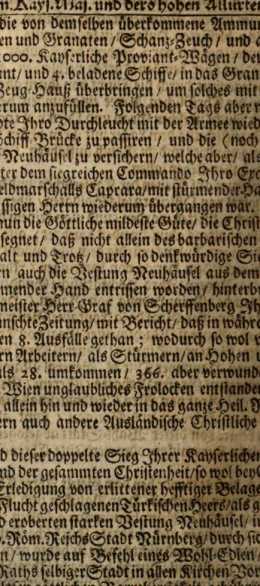 n. Kays. Maj. und dero hohen Alliirten
die von demselben überkommene Ammun
en und Granaten / Schanz-Zeuch / und a
000. Kayserliche Proviant-Wägen / den
nt/ und 4. beladene Schiffe/ in das Gran
Zeug-Hauß überbringen / um solches mit
erum anzufüllen. Folgenden Tags aber n
bte Ihro Durchleucht mit der Armee wied
Schiff Brucke zu passiren / und die (noch
Neuhäusel zu versichern/ welche aber/ als
ter dem siegreichen Commando Ihro Exc
eldmarschalls Caprara/mit stürmender Ha
ssigen Herrn wiederum übergangen war.
nun die Göttliche mildeste Güte/ die Christ
segnet / daß nicht allein des barbarischen
alt und Trotz/ durch so denckwürdige Sie
rn auch die Vestung Neuhäusel aus dem
mender Hand entrissen worden/ hinterb
meister Herr Graf von Scherffenberg Ih
unschte Zeitung/ mit Bericht/ daß in währe
en 8. Ausfälle gethan ; wodurch so wol v
rn Arbeitern/ als Stürmern/ an Hohen u
als 28. umkommen / 366. aber verwunde
Wien unglaubliches Frolocken entstanden
allein hin und wieder in das ganze Heil. R
ern auch andere Ausländische Christliche
d dieser doppelte Sieg Ihrer Kayserlichen
nd der gesammten Christenheit/ so wol beyl
Erledigung von erlittener hefftiger Belage
Flucht geschlagenen Türkischen Heers/ als g
d eroberten starken Vestung Neuhäusel/ in
. Röm. Reichs Stadt Nürnberg/ durch sic
n / wurde auf Befehl eines Wohl-Edlen/
Raths selbiger Stadt in allen Kirchen Vor